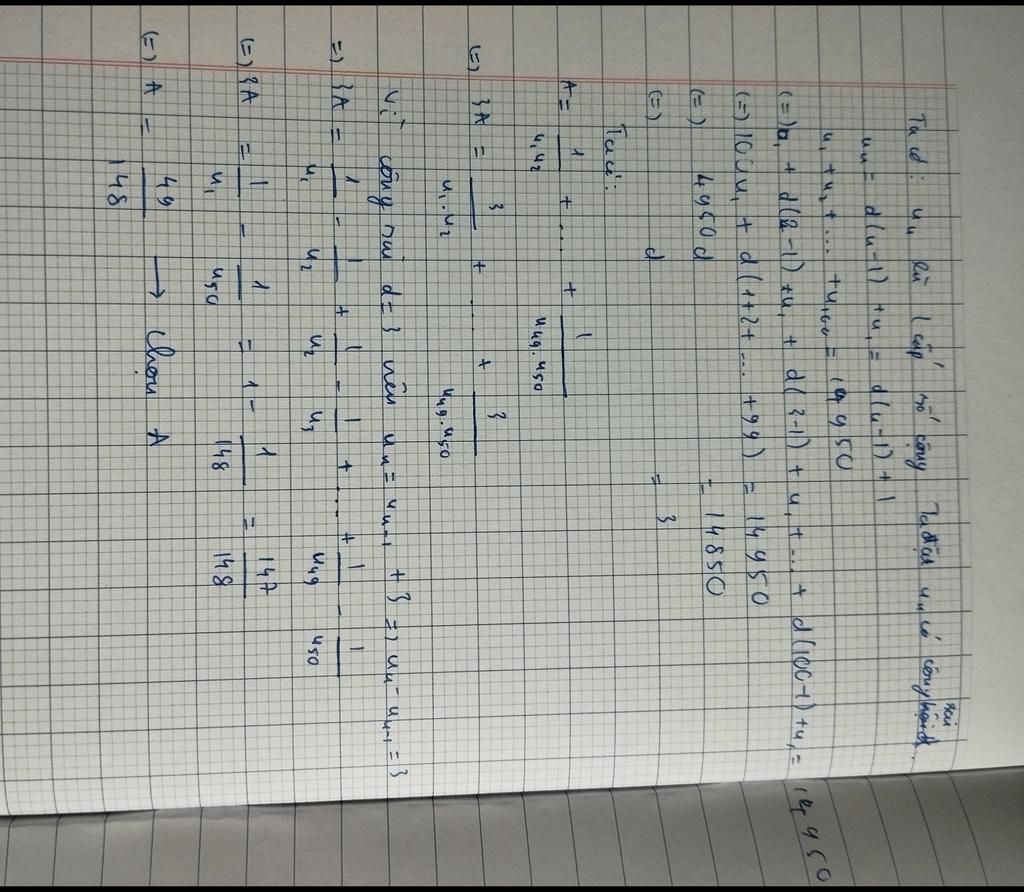 Ta có: uₙ là 1 cấp số cộng Ta đặt uₙ có công sai d.
uₙ = d(n-1) + u₁ = d(n-1) + 1
u₁ + u₂ + ... + u₁₀₀ = 14 950
(=) u₁ + d(2-1) + u₁ + d(3-1) + u₁ + ... + d(100-1) + u₁ = 14 950
(=) 100u₁ + d(1+2+ ... +99) = 14 950
(=) 4950d = 14850
(=) d = 3
Ta có:
A = 1/u₁u₂ + ... + 1/u₄₉.u₅₀
(=) 3A = 3/u₁.u₂ + ... + 3/u₄₉.u₅₀
Vì công sai d = 3 nên uₙ = uₙ₋₁ + 3 =) uₙ - uₙ₋₁ = 3
=) 3A = 1/u₁ - 1/u₂ + 1/u₂ - 1/u₃ + ... + 1/u₄₉ - 1/u₅₀
(=) 3A = 1/u₁ - 1/u₅₀ = 1 - 1/148 = 147/148
(=) A = 49/148 → Chọn A